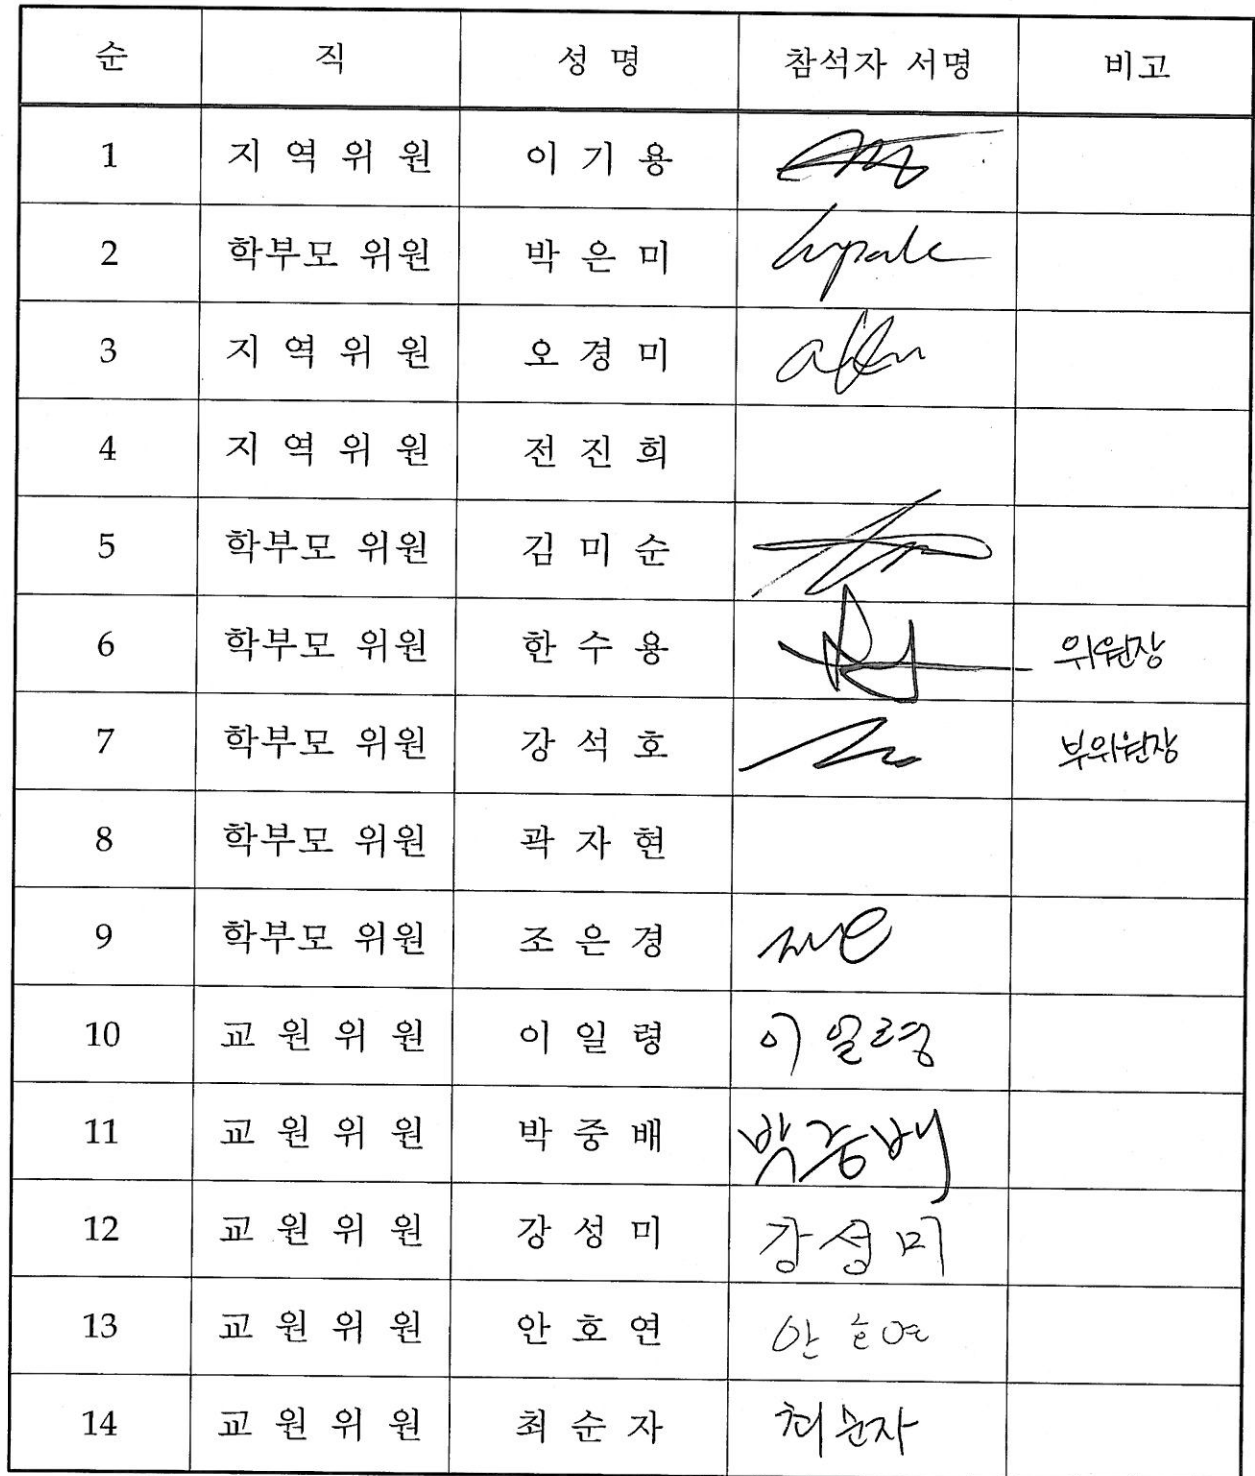 순 직 성 명 참석자 서명 비고
1 지 역 위 원 이 기 용
2 학부모 위원 박 은 미
3 지 역 위 원 오 경 미
4 지 역 위 원 전 진 희
5 학부모 위원 김 미 순
6 학부모 위원 한 수 용 위원장
7 학부모 위원 강 석 호 부위원장
8 학부모 위원 곽 자 현
9 학부모 위원 조 은 경
10 교 원 위 원 이 일 령 이일령
11 교 원 위 원 박 중 배 박중배
12 교 원 위 원 강 성 미 강성미
13 교 원 위 원 안 호 연 안호연
14 교 원 위 원 최 순 자 최순자